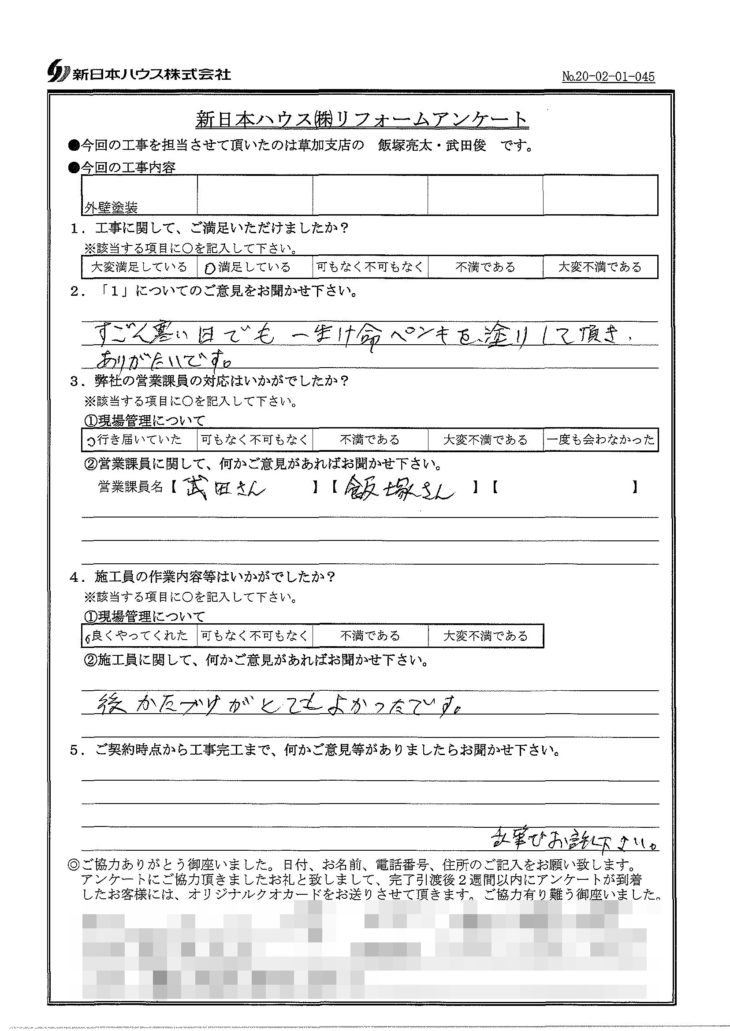 新日本ハウス株式会社
No.20-02-01-045
新日本ハウス㈱リフォームアンケート
●今回の工事を担当させて頂いたのは草加支店の 飯塚亮太・武田俊 です。
●今回の工事内容
外壁塗装
1．工事に関して、ご満足いただけましたか？
※該当する項目に○を記入して下さい。
大変満足している ○満足している 可もなく不可もなく 不満である 大変不満である
2．「1」についてのご意見をお聞かせ下さい。
すごん寒い日でも 一生け命ペンキを、塗りして頂き、
ありがたいです。
3．弊社の営業課員の対応はいかがでしたか？
※該当する項目に○を記入して下さい。
①現場管理について
○行き届いていた 可もなく不可もなく 不満である 大変不満である 一度も会わなかった
②営業課員に関して、何かご意見があればお聞かせ下さい。
営業課員名【 武田さん 】【 飯塚さん 】【 】
4．施工員の作業内容等はいかがでしたか？
※該当する項目に○を記入して下さい。
①現場管理について
○良くやってくれた 可もなく不可もなく 不満である 大変不満である
②施工員に関して、何かご意見があればお聞かせ下さい。
後かたづけがとてもよかったです。
5．ご契約時点から工事完工まで、何かご意見等がありましたらお聞かせ下さい。
下さい。
◎ご協力ありがとう御座いました。日付、お名前、電話番号、住所のご記入をお願い致します。
アンケートにご協力頂きましたお礼と致しまして、完了引渡後２週間以内にアンケートが到着
したお客様には、オリジナルクオカードをお送りさせて頂きます。ご協力有り難う御座いました。